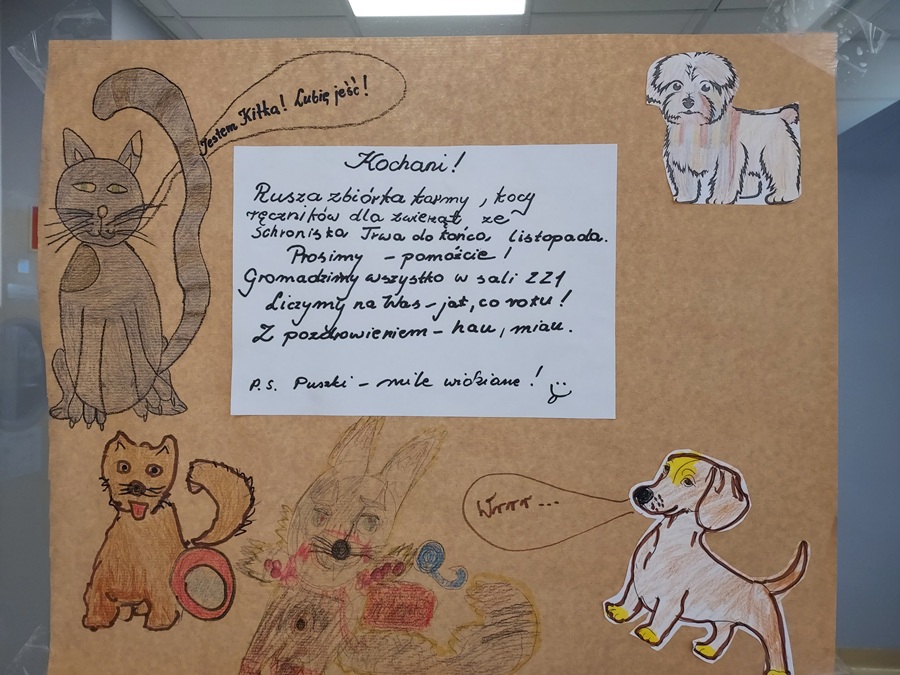 Jestem Kitka! Lubię jeść!
Kochani!
Rusza zbiórka karmy, kocy
ręczników dla zwierząt ze
Schroniska Trwa do końca listopada.
Prosimy - pomóżcie!
Gromadzimy wszystko w sali 221
Liczymy na Was - jak, co roku!
Z pozdrowieniem - hau, miau.
P.S. Puszki - mile widziane!
Wrrr...